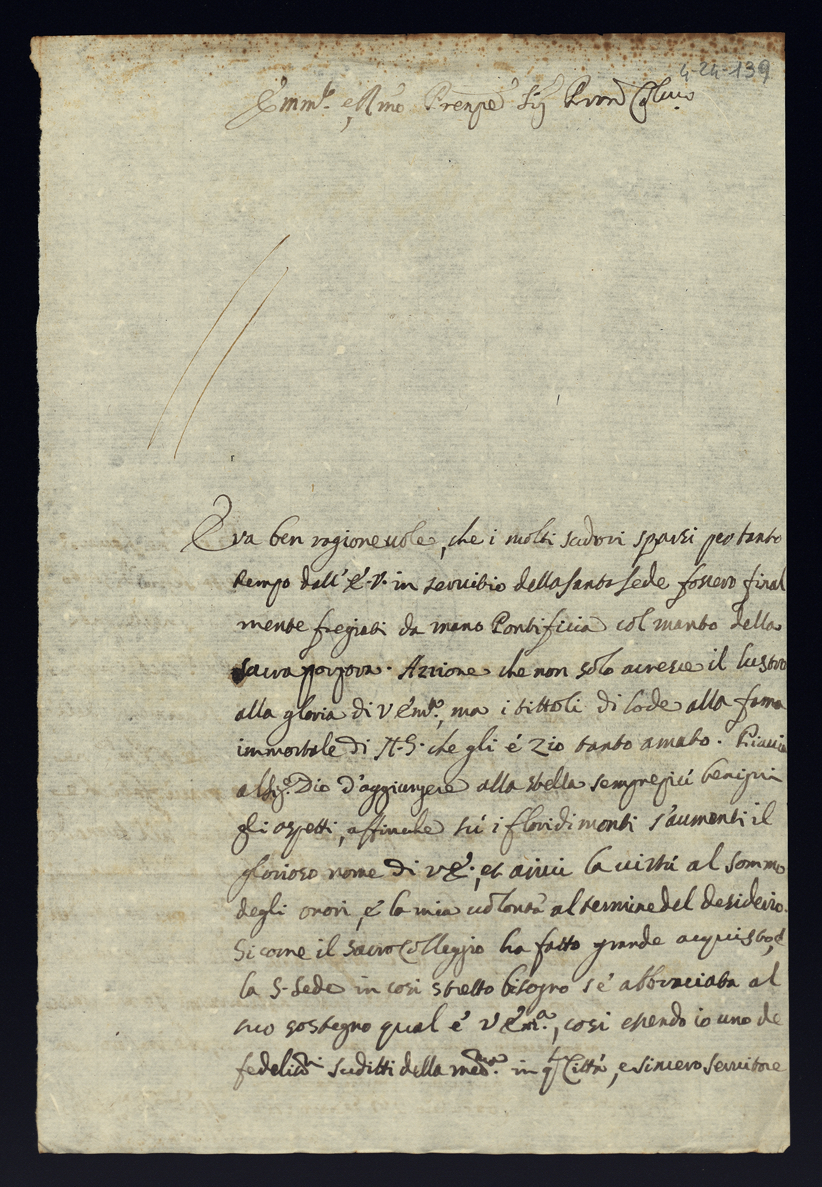 4-24-139
Em.mo e R.mo Prenpe Sig Pron Col.mo
Era ben ragioneuole, che i molti sudori sparsi per tanto
tempo dall' E. V. in seruitio della Santa Sede fossero final
mente fregiati da mano Pontificia col manto della
sacra porpora. Azzione che non solo acresce il lustro
alla gloria di V Em.a, ma i tittoli di lode alla fama
immortale di N. S. che gli é Zio tanto amato. Piaccia
al Sig.r Dio d'aggiungere alla stella semprepiú benigni
gli aspetti, affinche sú i floridi monti s'aumenti il
glorioso nome di V E., et arriui la uirtú al sommo
degli onori, é la mia uolontà al termine del desiderio.
Sicome il Sacro Colleggio ha fatto grande acquisto, é
la S. Sede in cosi stretto bisogno s'é abbracciata al
suo sostegno qual é V Em.a, cosi essendo io uno de
fedeliss.mi sudditti della med.ma in q.ta Cittá, e sincero seruitore